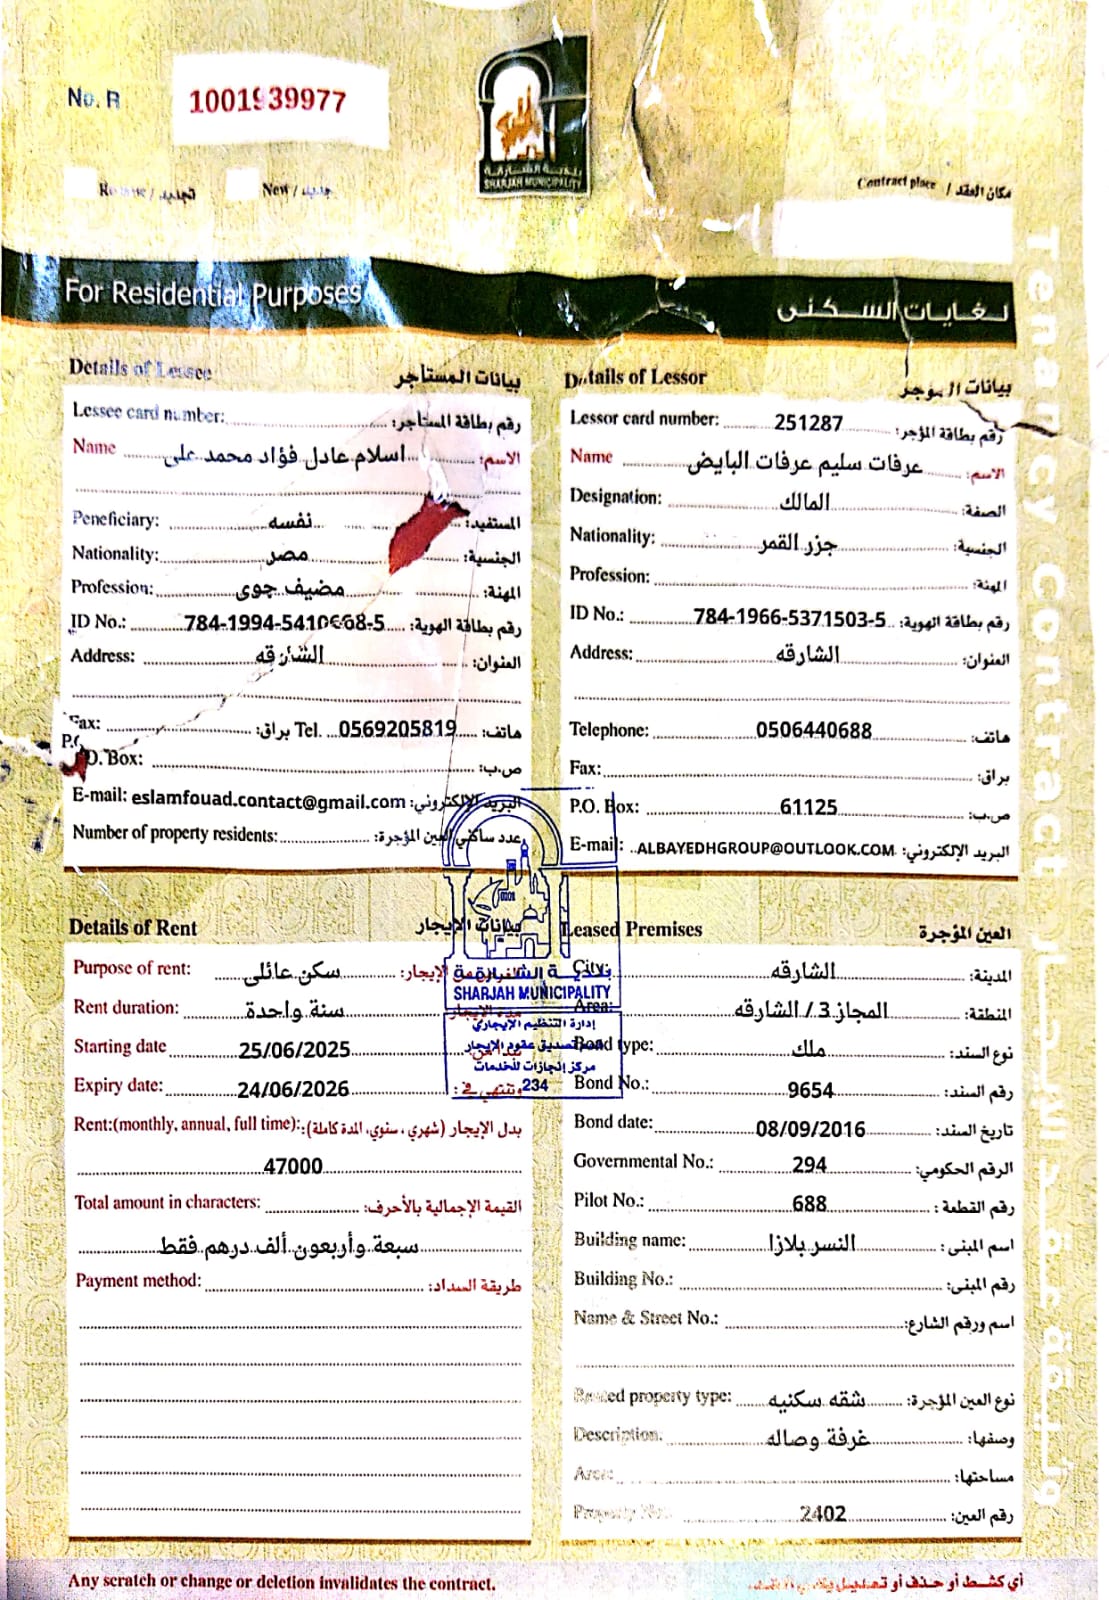 No. R 1001939977
بلدية الشارقة
SHARJAH MUNICIPALITY
تجديد /
New / جديد
Contract place / مكان العقد
For Residential Purposes
لغايات السكنى
Tenancy Contract
Details of Lessee بيانات المستأجر
Lessee card number: رقم بطاقة المستأجر:
Name اسلام عادل فؤاد محمد على الاسم:
Peneficiary: نفسه المستفيد:
Nationality: مصر الجنسية:
Profession: مضيف جوى المهنة:
ID No.: 784-1994-5410668-5 رقم بطاقة الهوية:
Address: الشارقه العنوان:
Fax: براق: Tel. 0569205819 هاتف:
P.O. Box: ص.ب:
E-mail: eslamfouad.contact@gmail.com البريد الإلكتروني:
Number of property residents: عدد ساكني العين المؤجرة:
Details of Lessor بيانات المؤجر
Lessor card number: 251287 رقم بطاقة المؤجر:
Name عرفات سليم عرفات البايض الاسم:
Designation: المالك الصفة:
Nationality: جزر القمر الجنسية:
Profession: المهنة:
ID No.: 784-1966-5371503-5 رقم بطاقة الهوية:
Address: الشارقه العنوان:
Telephone: 0506440688 هاتف:
Fax: براق:
P.O. Box: 61125 ص.ب:
E-mail: ALBAYEDHGROUP@OUTLOOK.COM البريد الإلكتروني:
Details of Rent بيانات الإيجار
Purpose of rent: سكن عائلى الإيجار:
Rent duration: سنة واحدة مدة الإيجار
Starting date 25/06/2025
Expiry date: 24/06/2026 وتنتهي في:
Rent:(monthly, annual, full time): بدل الإيجار (شهري، سنوي، المدة كاملة):
47000
Total amount in characters: القيمة الإجمالية بالأحرف:
سبعة وأربعون ألف درهم فقط
Payment method: طريقة السداد:
بلدية الشارقة
SHARJAH MUNICIPALITY
إدارة التنظيم الإيجاري
تصديق عقود الإيجار
مركز إنجازات للخدمات
234
Leased Premises العين المؤجرة
City: الشارقه المدينة:
Area: المجاز 3 / الشارقه المنطقة:
Bond type: ملك نوع السند:
Bond No.: 9654 رقم السند:
Bond date: 08/09/2016 تاريخ السند:
Governmental No.: 294 الرقم الحكومي:
Pilot No.: 688 رقم القطعة:
Building name: النسر بلازا اسم المبنى:
Building No.: رقم المبنى:
Name & Street No.: اسم ورقم الشارع:
Rented property type: شقه سكنيه نوع العين المؤجرة:
Description: غرفة وصاله وصفها:
Area: مساحتها:
Property No.: 2402 رقم العين:
Any scratch or change or deletion invalidates the contract.
أي كشط أو حذف أو تعديل